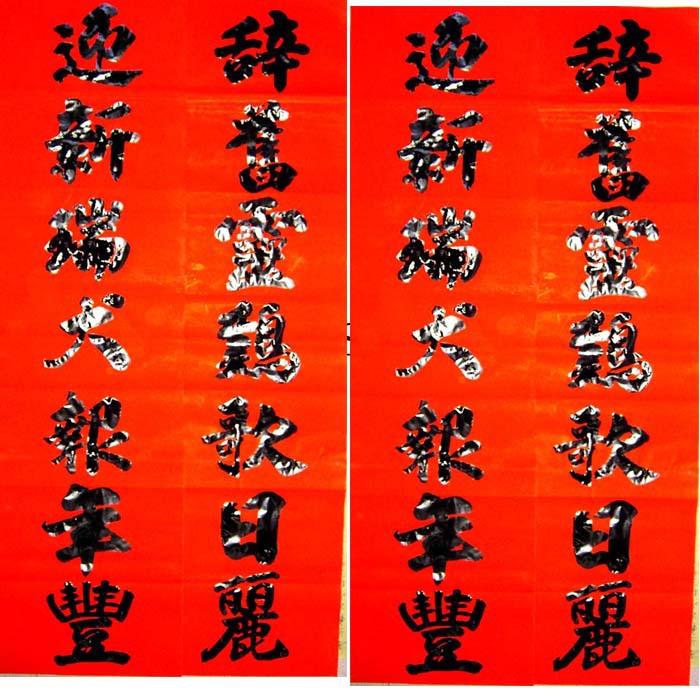 辞舊靈鷄歌日麗
迎新瑞犬報年豐
辞舊靈鷄歌日麗
迎新瑞犬報年豐